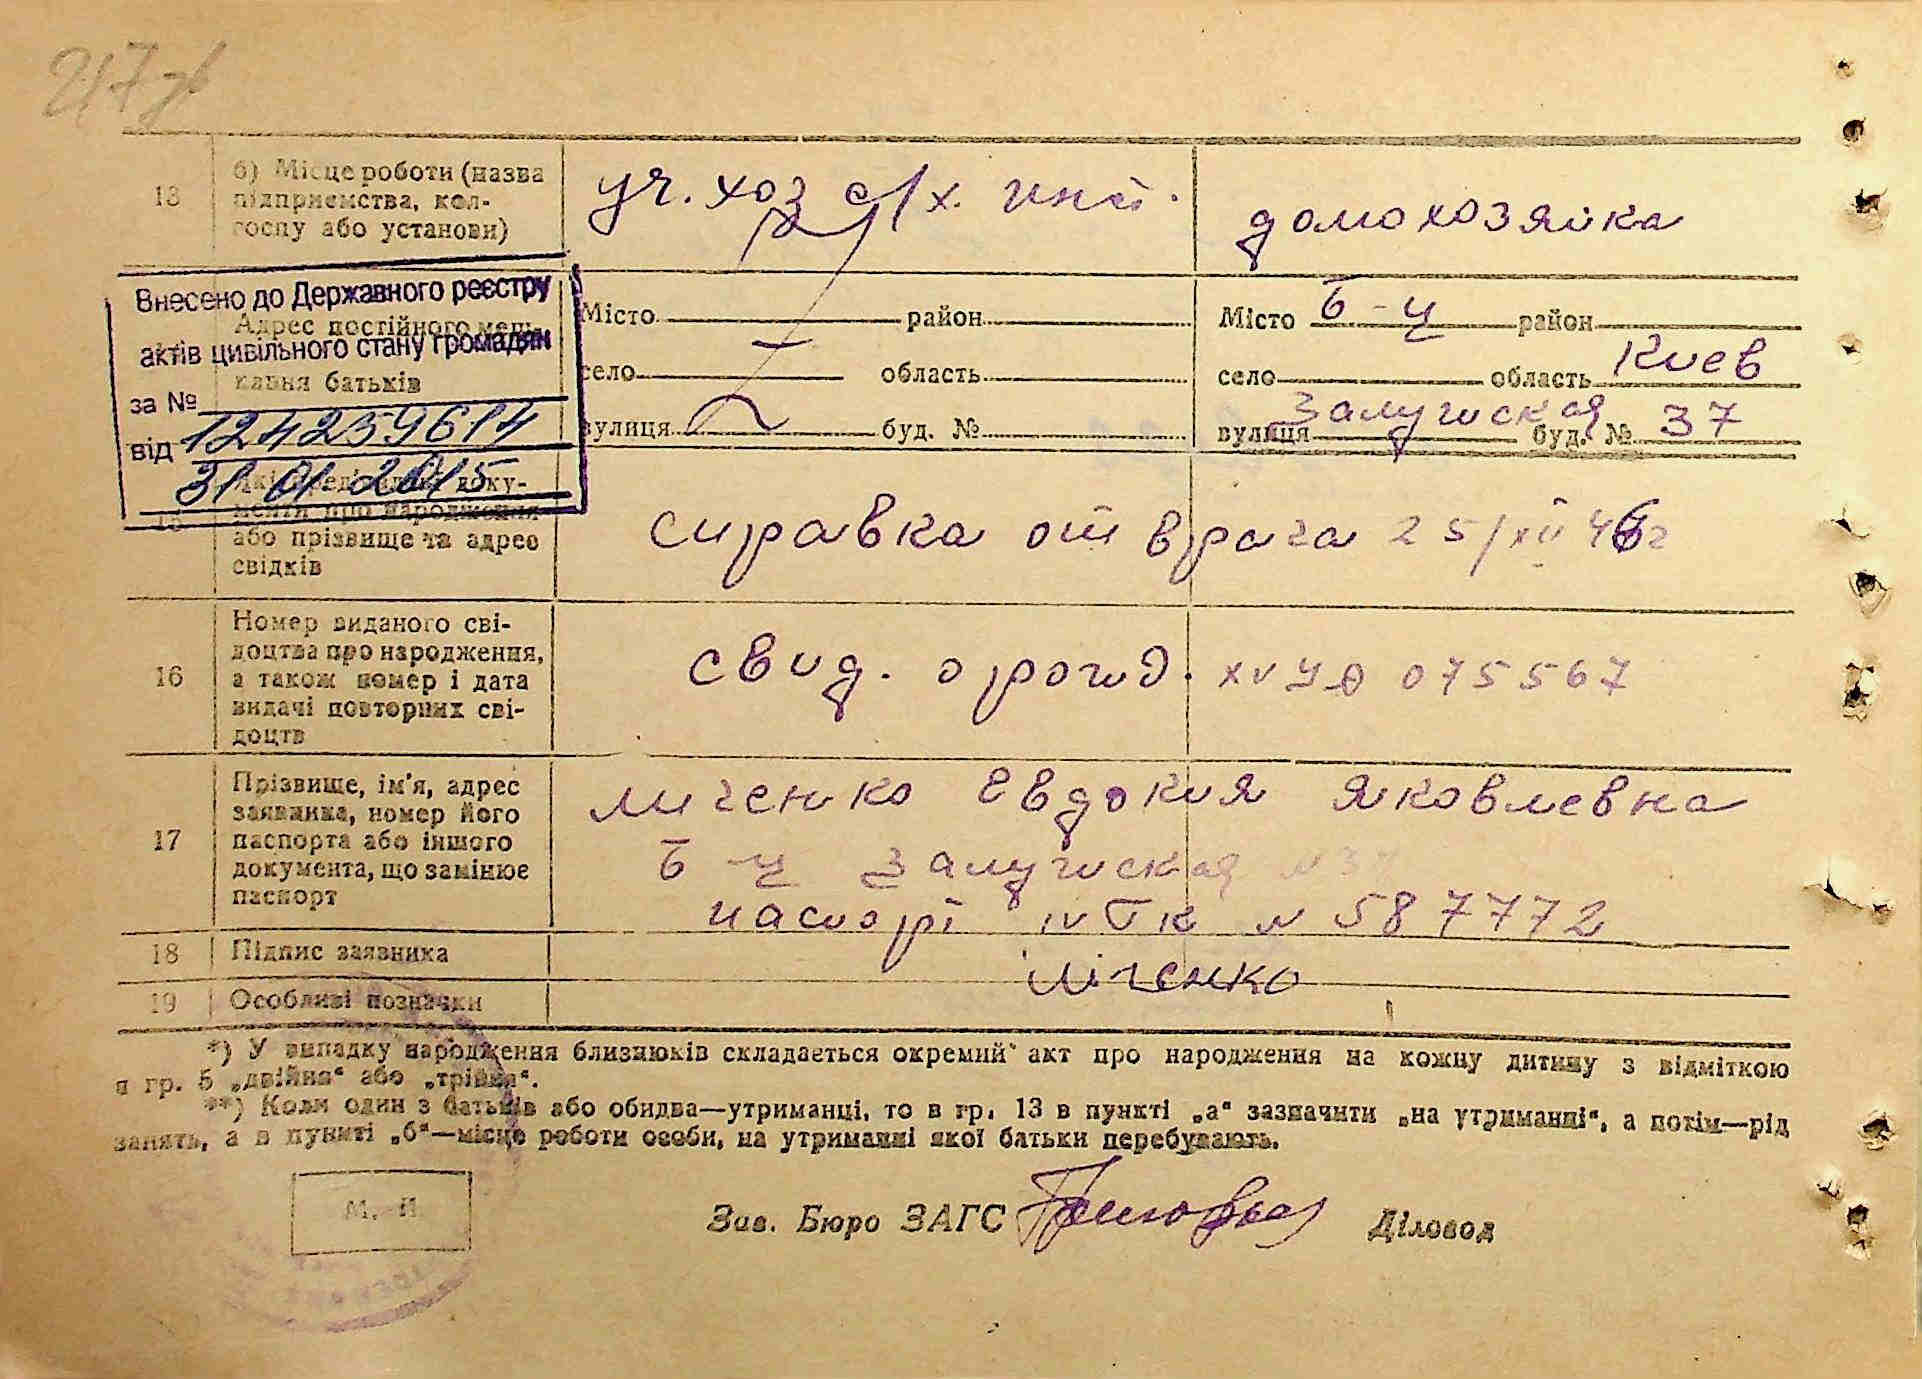 217 зв
13
б) Місце роботи (назва
підприємства, кол-
госпу або установи)
уч. хоз с/х. инст.
домохозяйка
Внесено до Державного реєстру
актів цивільного стану громадян
за № 124259614
від 31 01 2015
Адрес постійного меш-
кання батьків
Місто район
село область
вулиця буд. №
Місто Б-Ц район
село область Киев
вулиця буд. № 37
15
які предʼявлені доку-
менти про народження
або прізвище та адрес
свідків
справка от врача 25/XII 46г
16
Номер виданого сві-
доцтва про народження,
а також номер і дата
видачі повторних сві-
доцтв
свид. о рожд. 075567
17
Прізвище, ім'я, адрес
заявника, номер його
паспорта або іншого
документа, що замінює
паспорт
Личенко Евдокия Яковлевна
Б-Ц
паспорт № 587772
18
Підпис заявника
Ліченко
19
Особливі позначки
*) У випадку народження близнюків складається окремий акт про народження на кожну дитину з відміткою
в гр. 5 „двійня“ або „трійня“.
**) Коли один з батьків або обидва—утриманці, то в гр. 13 в пункті „а“ зазначити „на утриманні“, а потім—рід
занять, а в пункті „б“—місце роботи особи, на утриманні якої батьки перебувають.
М. П.
Зав. Бюро ЗАГС
Діловод